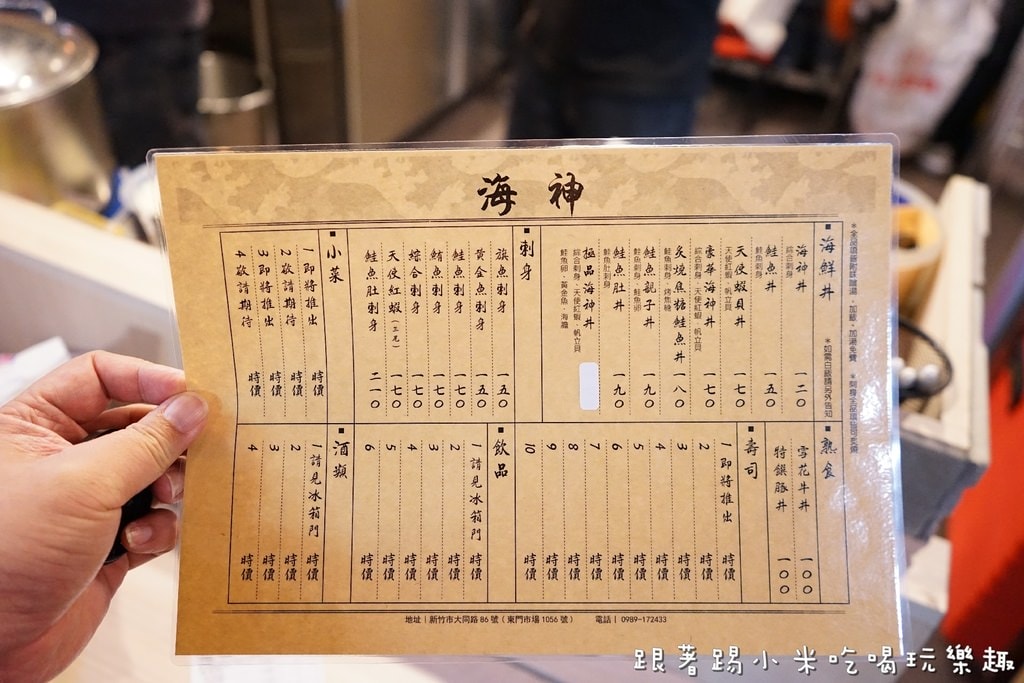 海神
*如需白飯請另外告知
■海鮮丼
海神丼 一二〇
綜合刺身
鮭魚丼 一五〇
鮭魚刺身
天使蝦貝丼 一七〇
天使紅蝦、帆立貝
豪華海神丼 一七〇
綜合刺身、天使紅蝦、帆立貝
炙燒焦糖鮭魚丼 一八〇
鮭魚刺身
鮭魚親子丼 一九〇
鮭魚刺身、鮭魚卵
鮭魚肚丼 一九〇
鮭魚肚刺身
極品海神丼
綜合刺身、天使紅蝦、帆立貝
鮭魚卵、黃金魚、海膽
■刺身
旗魚刺身 一五〇
黃金魚刺身 一五〇
鮭魚刺身 一七〇
鮪魚刺身 一七〇
綜合刺身 一七〇
天使紅蝦(三尾) 一七〇
鮭魚肚刺身 二一〇
■小菜
1 即將推出 時價
2 敬請期待 時價
3 即將推出 時價
4 敬請期待 時價
■熟食
雪花牛丼 一〇〇
特饌豚丼 一〇〇
■壽司
1 即將推出 時價
2 時價
3 時價
4 時價
5 時價
6 時價
7 時價
8 時價
9 時價
10 時價
■飲品
1 請見冰箱門 時價
2 時價
3 時價
4 時價
5 時價
6 時價
■酒類
1 請見冰箱門 時價
2 時價
3 時價
4 時價
地址｜新竹市大同路86號（東門市場1056號） 電話｜0989-172433
跟著踢小米吃喝玩樂趣